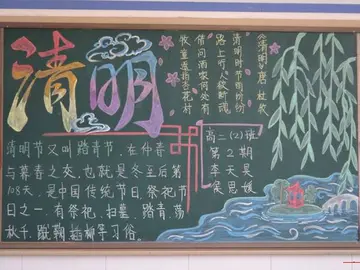 清明
《清明》唐 杜牧
清明时节雨纷纷
路上行人欲断魂
借问酒家何处有
牧童遥指杏花村
高二(2)班
第2期
李天昊
侯思媛
清明节又叫踏青节,在仲春
与暮春之交,也就是冬至后第
108天,是中国传统节日,祭祀节
日之一,有祭祀、扫墓、踏青、荡
秋千、蹴鞠、插柳等习俗。